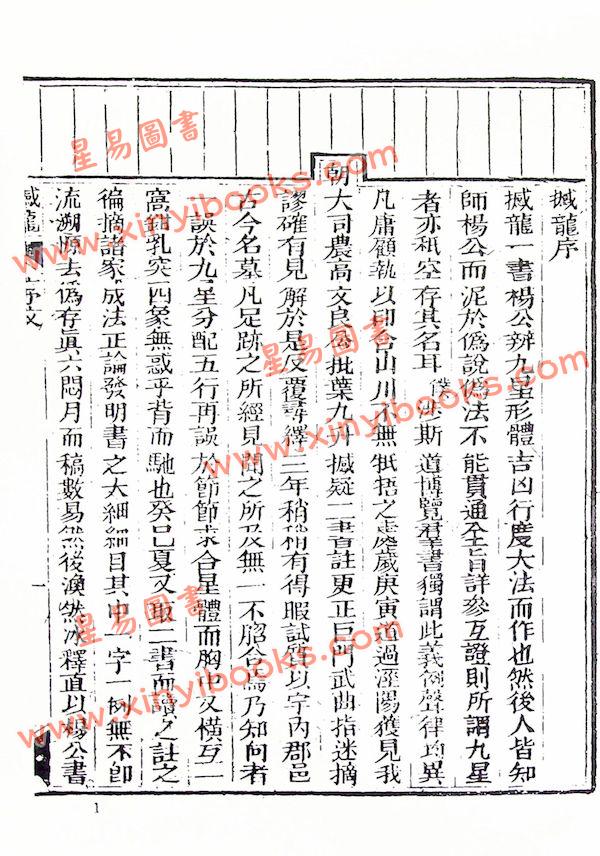 撼龍序
撼龍一書楊公辨九星形體吉凶行度大法而作也然後人皆知
師楊公而泥於僞說僞法不能貫通全旨詳參互證則所謂九星
者亦祇空存其名耳僕 斯道博覽羣書獨謂此義例聲律均異
凡庸顧執以印合山川不無牴牾之處歲庚寅道過涇陽獲見我
朝大司農高文良公批葉九升撼疑二書首註更正巨門武曲指迷摘
謬確有見解於是反覆尋繹三年稍稍有得暇試質以宇內郡邑
古今名墓凡足跡之所經見聞之所及無一不脗合焉乃知向者
一誤於九星分配五行再誤於節節求合星體而胸中又橫互一
窩鉗乳突四象無惑乎背而馳也癸巳夏又取二書而讀之註之
徧摘諸家成法正論發明書之大綱細目其中一字一例無不卽
流溯源去僞存眞六閱月而稿數易然後渙然冰釋直以楊公書
撼龍 序文 一
1
星易圖書
www.xinyibooks.com
星易圖書
www.xinyibooks.com
星易圖書
www.xinyibooks.com